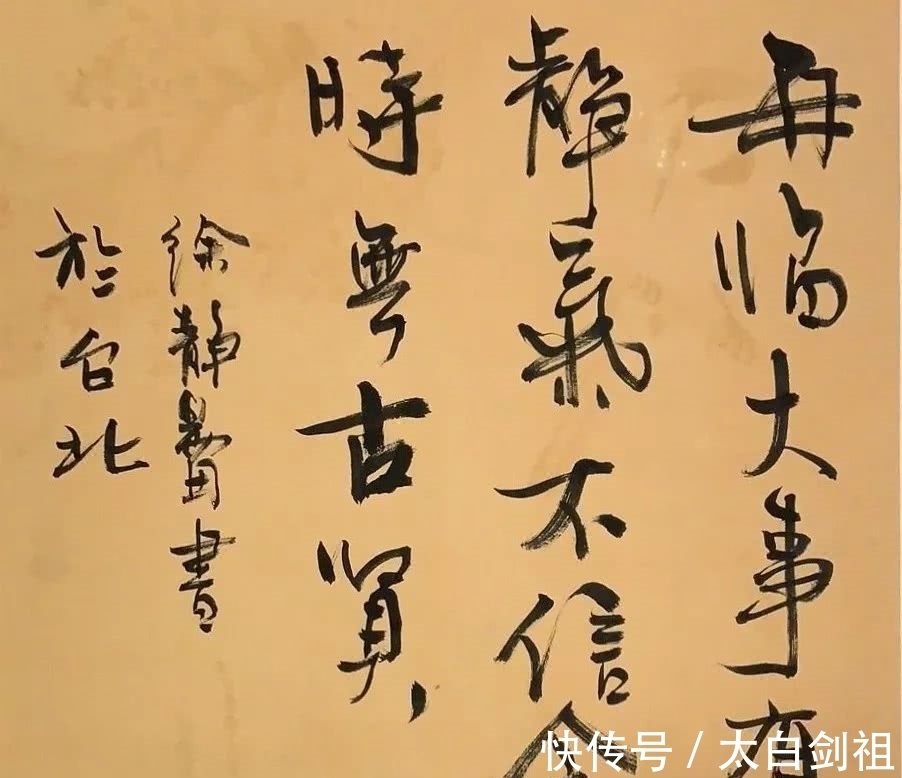 每临大事有
静氣不信今
時無古賢
徐静蕾書
於台北
快传号 / 太白剑祖